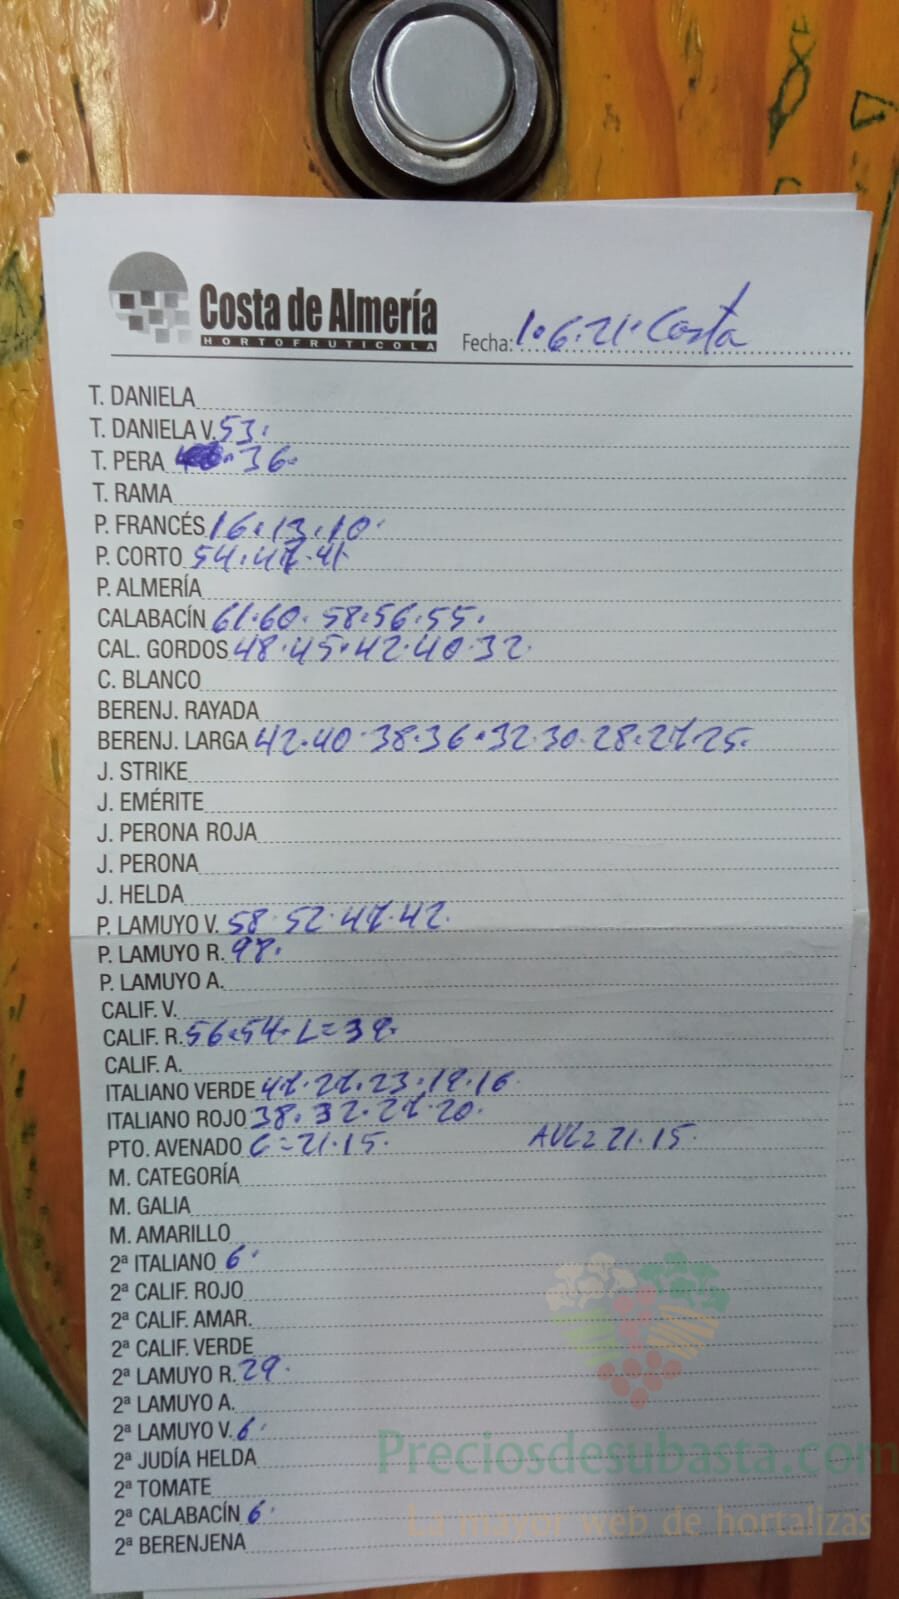 Costa de Almería
HORTOFRUTICOLA
Fecha: 1.6.21. Costa
T. DANIELA
T. DANIELA V. 53.
T. PERA 36.
T. RAMA
P. FRANCÉS 16.13.10.
P. CORTO 54.47.41
P. ALMERÍA
CALABACÍN 61.60.58.56.55.
CAL. GORDOS 48.45.42.40.32.
C. BLANCO
BERENJ. RAYADA
BERENJ. LARGA 42.40.38.36.32.30.28.27.25.
J. STRIKE
J. EMÉRITE
J. PERONA ROJA
J. PERONA
J. HELDA
P. LAMUYO V. 58.52.47.42.
P. LAMUYO R.
P. LAMUYO A.
CALIF. V.
CALIF. R. 56.54. L=
CALIF. A.
ITALIANO VERDE 47.27.23.19.16
ITALIANO ROJO 38.32.27.20.
PTO. AVENADO C=21.15. 21.15.
M. CATEGORÍA
M. GALIA
M. AMARILLO
2ª ITALIANO 6.
2ª CALIF. ROJO
2ª CALIF. AMAR.
2ª CALIF. VERDE
2ª LAMUYO R. 29.
2ª LAMUYO A.
2ª LAMUYO V. 6.
2ª JUDÍA HELDA
2ª TOMATE
2ª CALABACÍN 6.
2ª BERENJENA
Preciosdesubasta.com
La mayor web de hortalizas